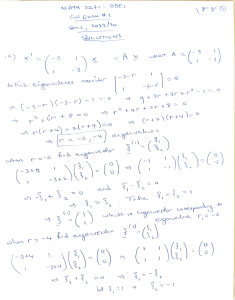 MATH 2271: ODEs
CW Exam #2
Sem 1, 2023/24
SOLUTIONS
1a) x' = (-3 1; 1 -3) x = A x where A = (-3 1; 1 -3)
To find eigenvalues consider |-3-r 1; 1 -3-r| = 0
⇒ (-3-r)(-3-r) - 1 = 0 ⇒ 9+3r+3r+r²-1 = 0
⇒ r² + 6r + 8 = 0 ⇒ r² + 4r + 2r + 8 = 0
⇒ r(r+4) + 2(r+4) = 0 ⇒ (r+2)(r+4) = 0
⇒ r = -2, -4 eigenvalues
When r = -2 find eigenvector ξ⁽¹⁾ = (ξ₁; ξ₂)
(-3+2 1; 1 -3+2)(ξ₁; ξ₂) = (0; 0) ⇒ (-1 1; 1 -1)(ξ₁; ξ₂) = (0; 0)
⇒ -ξ₁ + ξ₂ = 0 and ξ₁ - ξ₂ = 0
⇒ ξ₁ = ξ₂ Take ξ₁ = ξ₂ = 1
⇒ ξ⁽¹⁾ = (1; 1) which is eigenvector corresponding to
eigenvalue r₁ = -2
When r = -4 find eigenvector ξ⁽²⁾ = (ξ₁; ξ₂)
(-3+4 1; 1 -3+4)(ξ₁; ξ₂) = (0; 0) ⇒ (1 1; 1 1)(ξ₁; ξ₂) = (0; 0)
⇒ ξ₁ + ξ₂ = 0 ⇒ ξ₁ = -ξ₂
Let ξ₁ = 1 ⇒ ξ₂ = -1